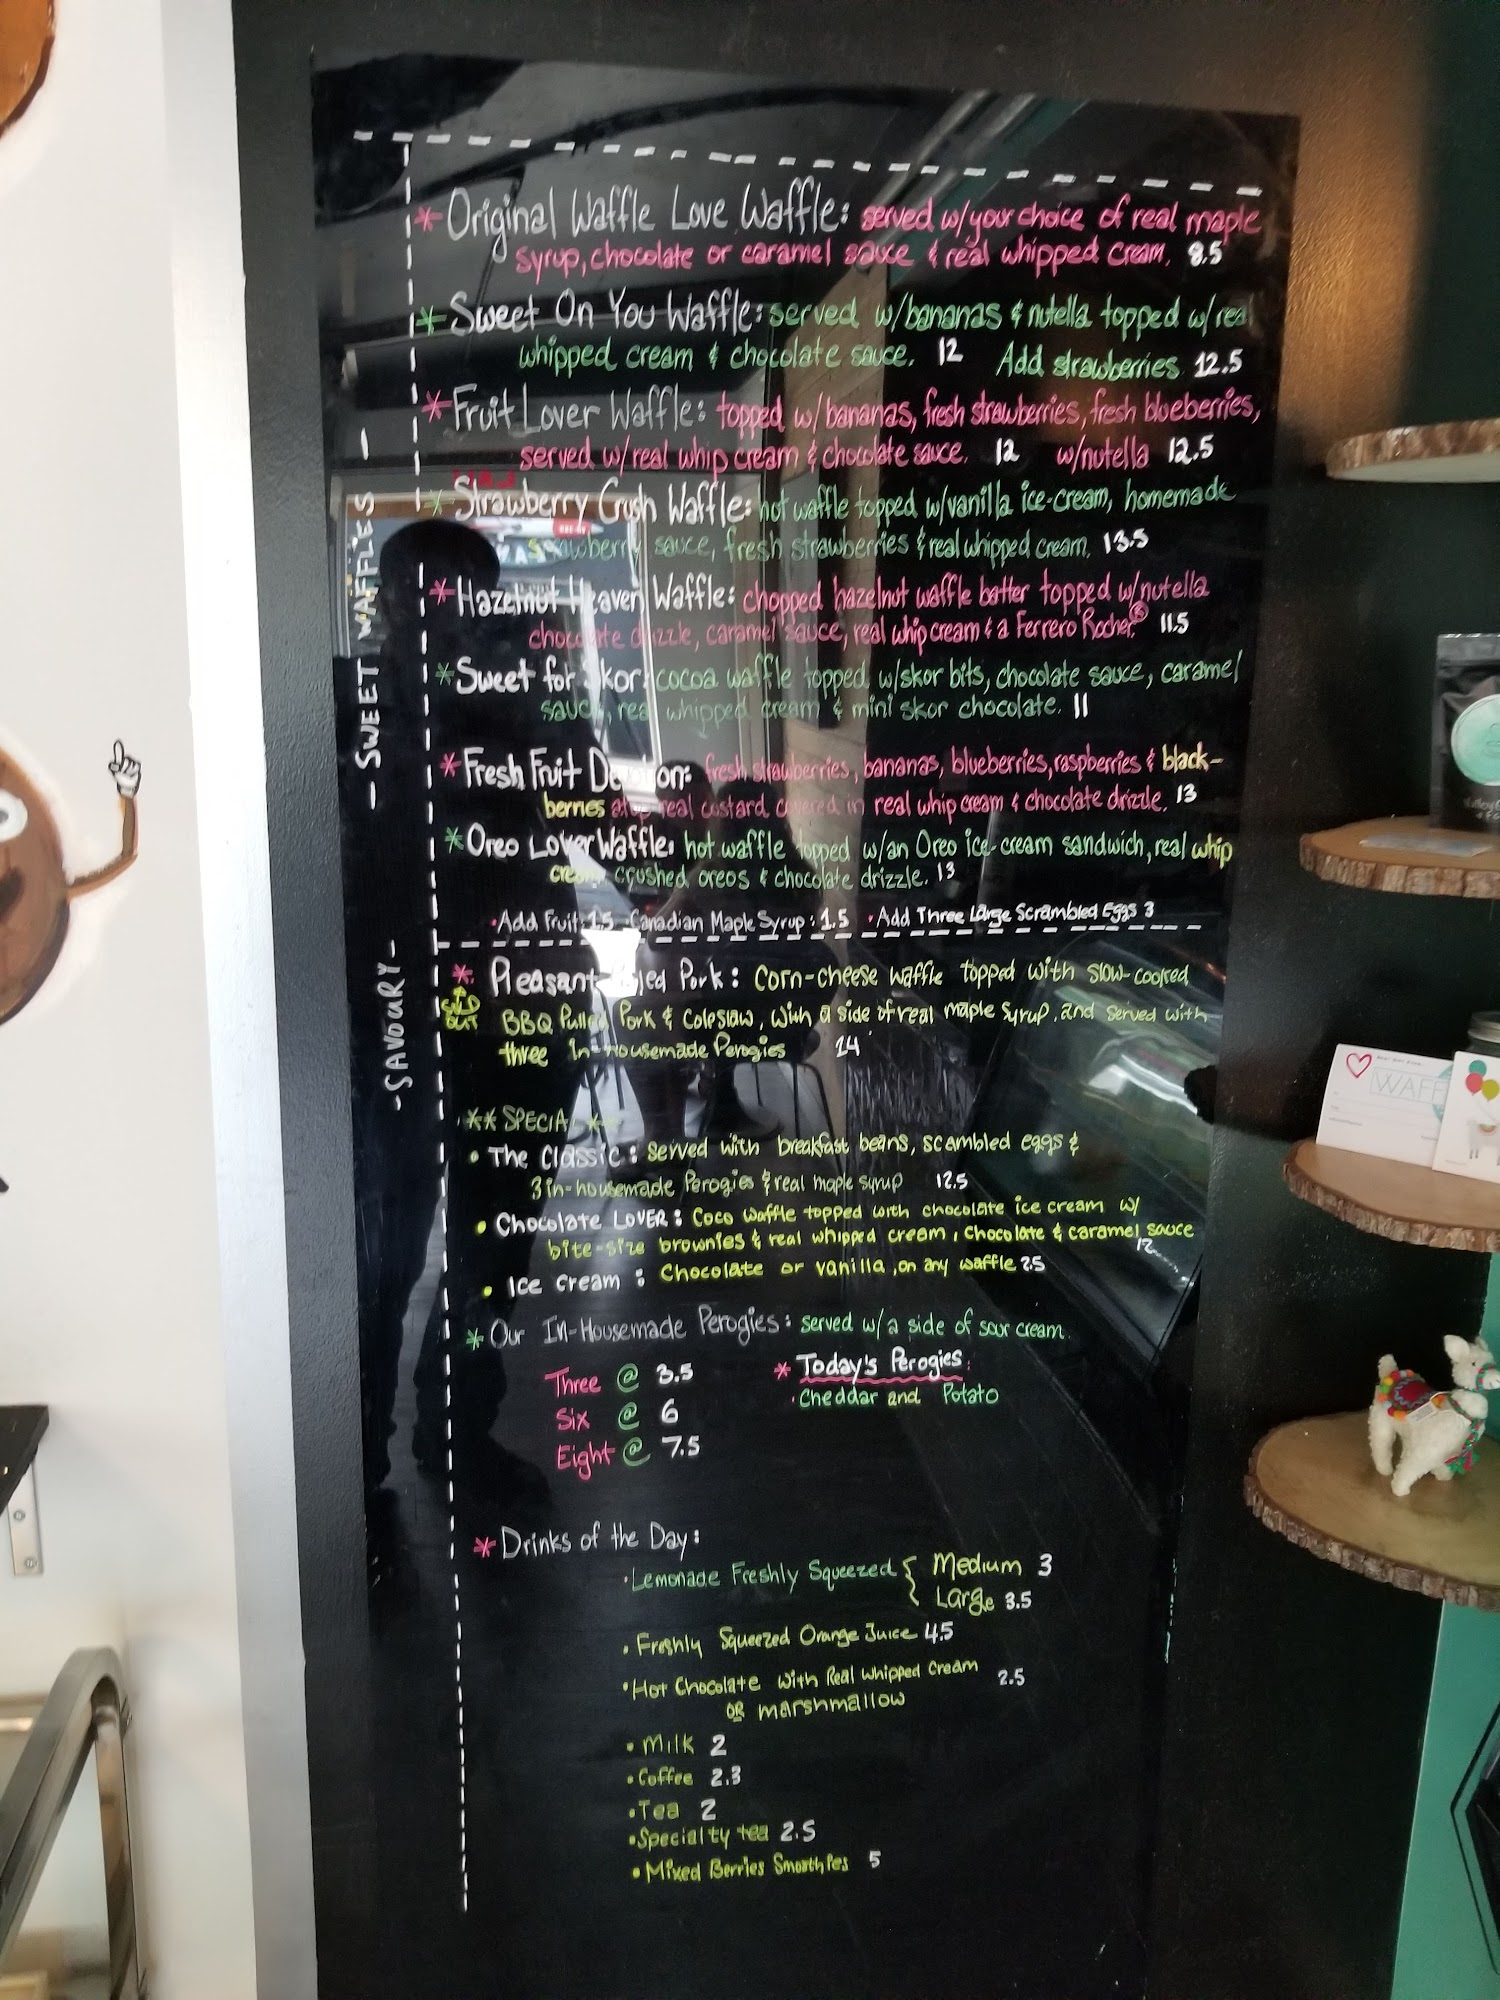 * Original Waffle Love Waffle: served w/your choice of real maple
syrup, chocolate or caramel sauce & real whipped cream. 8.5
* Sweet On You Waffle: served w/bananas & nutella topped w/real
whipped cream & chocolate sauce. 12 Add strawberries 12.5
* Fruit Lover Waffle: topped w/bananas, fresh strawberries, fresh blueberries,
served w/real whip cream & chocolate sauce. 12 w/nutella 12.5
* Strawberry Crush Waffle: hot waffle topped w/vanilla ice-cream, homemade
strawberry sauce, fresh strawberries & real whipped cream. 13.5
* Hazelnut Heaven Waffle: chopped hazelnut waffle batter topped w/nutella
chocolate drizzle, caramel sauce, real whip cream & a Ferrero Rocher® 11.5
* Sweet for Skor: cocoa waffle topped w/skor bits, chocolate sauce, caramel
sauce, real whipped cream & mini skor chocolate. 11
* Fresh Fruit Devotion: fresh strawberries, bananas, blueberries, raspberries & black-
berries atop real custard covered in real whip cream & chocolate drizzle. 13
* Oreo Lover Waffle: hot waffle topped w/an Oreo ice-cream sandwich, real whip
cream, crushed oreos & chocolate drizzle. 13
· Add Fruit: 1.5 · Canadian Maple Syrup: 1.5 · Add Three Large Scrambled Eggs 3
- SWEET WAFFLES -
- SAVOURY -
* Pleasant Pulled Pork: Corn-cheese waffle topped with slow-cooked
SOLD OUT
BBQ Pulled Pork & Coleslaw, with a side of real maple syrup, and served with
three In-housemade Perogies 14
** SPECIAL **
• The Classic: served with breakfast beans, scambled eggs &
3 in-housemade Perogies & real maple syrup 12.5
• Chocolate LOVER: Coco waffle topped with chocolate ice cream w/
bite-size brownies & real whipped cream, Chocolate & caramel sauce
12
• Ice cream: Chocolate or vanilla, on any waffle 2.5
* Our In-Housemade Perogies: served w/a side of sour cream.
Three @ 3.5
Six @ 6
Eight @ 7.5
* Today's Perogies:
· Cheddar and Potato
* Drinks of the Day:
· Lemonade Freshly Squeezed { Medium 3
Large 3.5
• Freshly Squeezed Orange Juice 4.5
• Hot Chocolate with Real Whipped Cream 2.5
OR marshmallow
• Milk 2
• Coffee 2.3
• Tea 2
• Specialty tea 2.5
• Mixed Berries Smoothies 5
WAFF